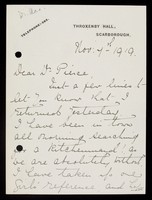 TELEPHONE:
THROXENBY HALL,
SCARBOROUGH.
Nov: 7th 1919.
Dear Dr Peirce.
Just a few lines to
let you know that I
returned yesterday
I have been in town
all morning searching
for a kitchenmaid as
we are absolutely without
I have taken up one
Girl's reference and